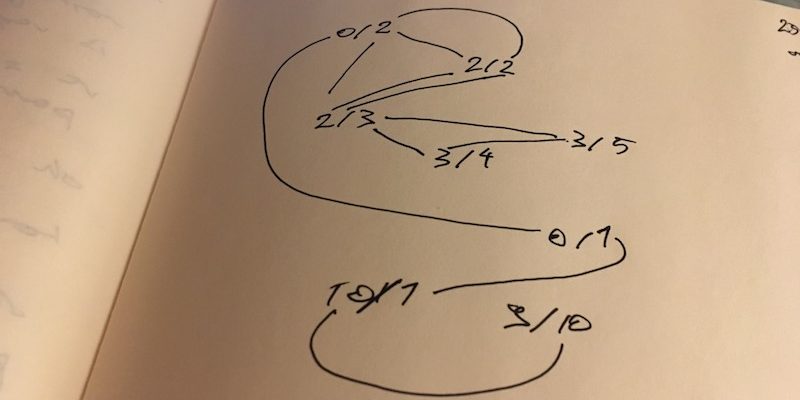 0/2
2/2
2/3
3/5
3/4
0/1
10/1
3/10